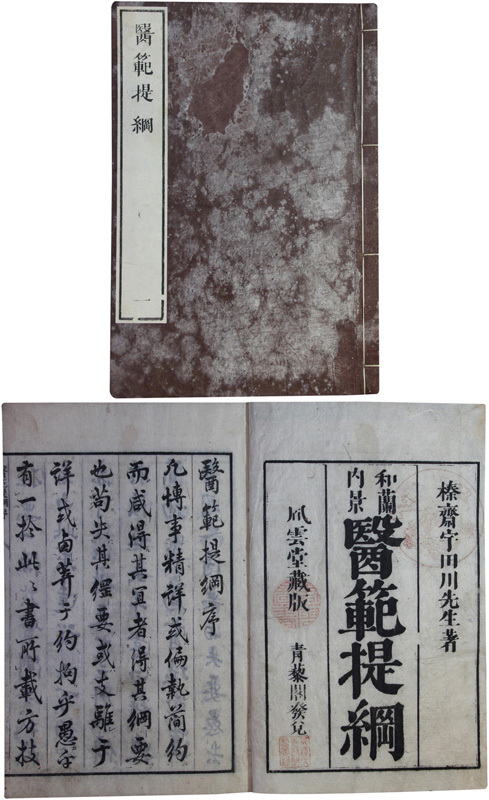 醫範提綱
一
榛齋宇田川先生著
和蘭
内景
醫範提綱
風雲堂藏版
青藜閣發兌
醫範提綱序
凡博事精詳或偏執简約
而咸得其宜者得其綱要
也苟失其要或支離于
詳或鹵莽于約拘乎愚
有一於此書所載方技